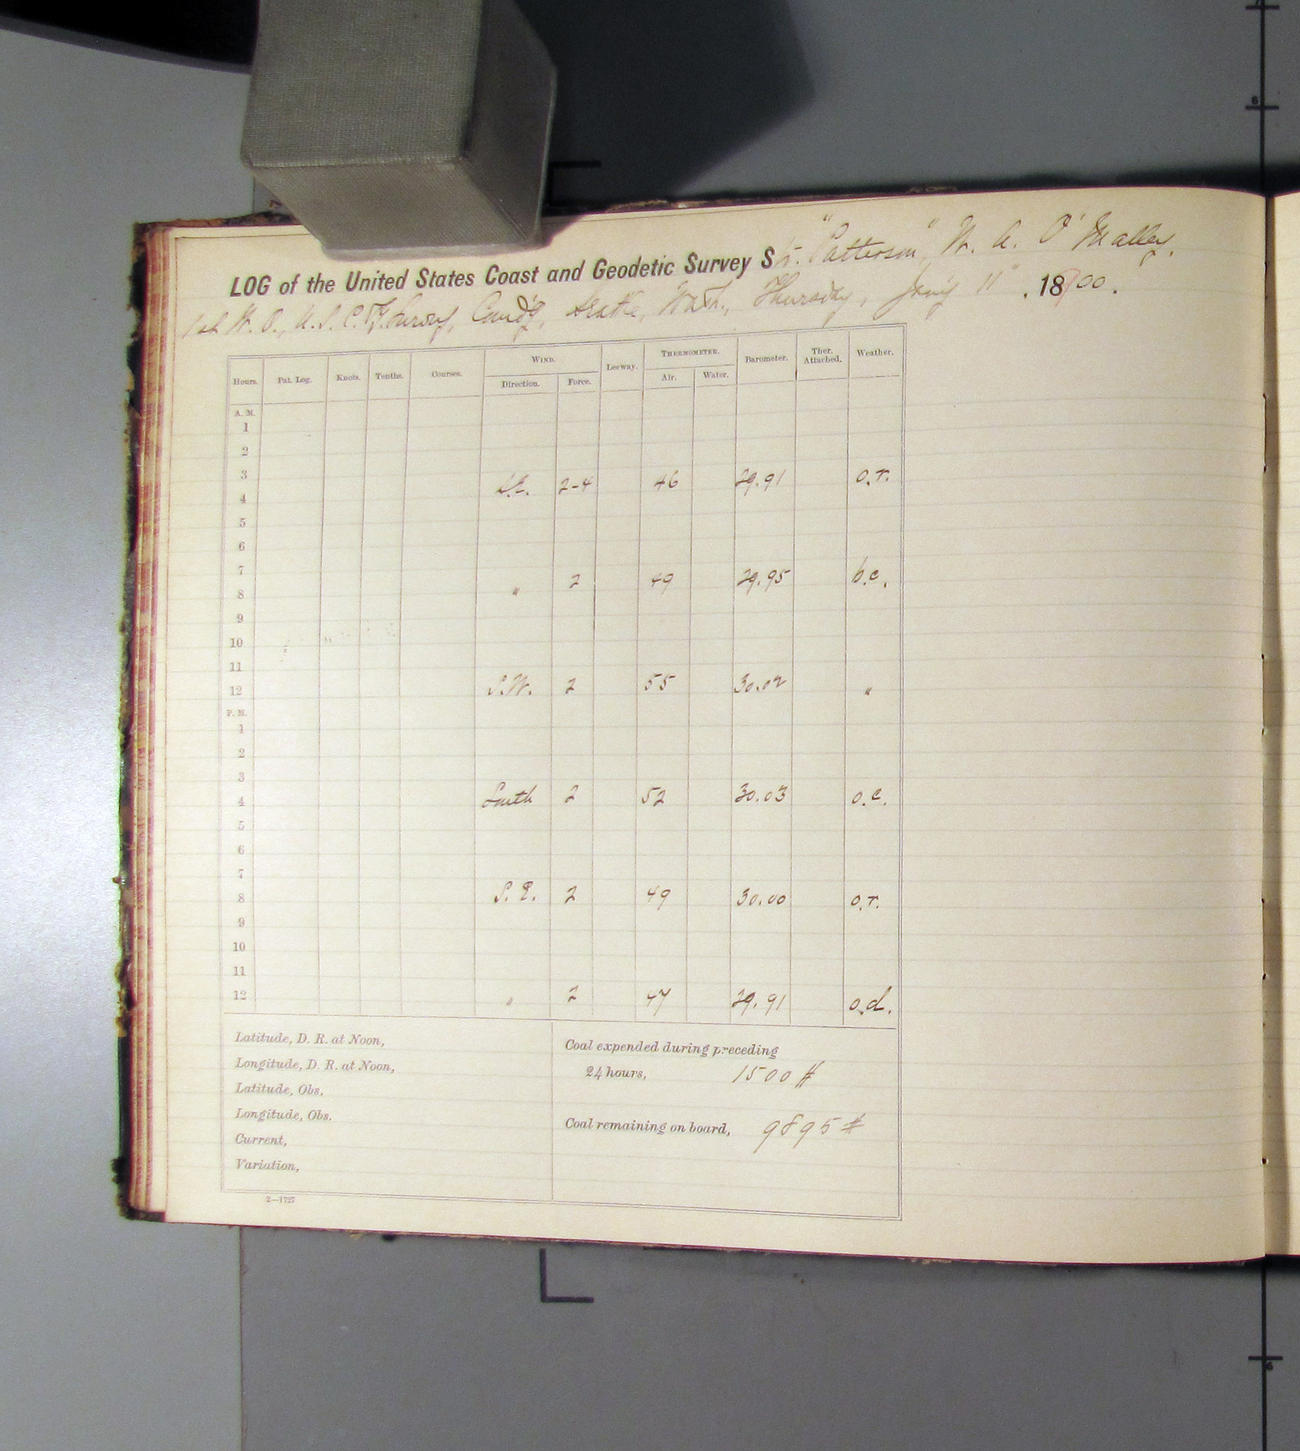 LOG of the United States Coast and Geodetic Survey Str. "Patterson", W. A. O'Malley,
1st W. O., U.S.C.&G. Survey, Comd'g, Seattle, Wash., Thursday, Jan'y 11" , 1900.
Hours. Pat. Log. Knots. Tenths. Courses. WIND. Leeway. THERMOMETER. Barometer. Ther. Attached. Weather.
Direction. Force. Air. Water.
A. M.
1
2
3 S.E. 2-4 46 29.91 o.r.
4
5
6
7 " 2 49 29.95 b.c.
8
9
10
11
12 S.W. 2 55 30.02 "
P. M.
1
2
3
4 South 2 52 30.03 o.c.
5
6
7
8 S.E. 2 49 30.00 o.r.
9
10
11
12 " 2 47 29.91 o.d.
Latitude, D. R. at Noon,
Longitude, D. R. at Noon,
Latitude, Obs.
Longitude, Obs.
Current,
Variation,
Coal expended during preceding
24 hours, 1500 #
Coal remaining on board, 9895 #
2—1727